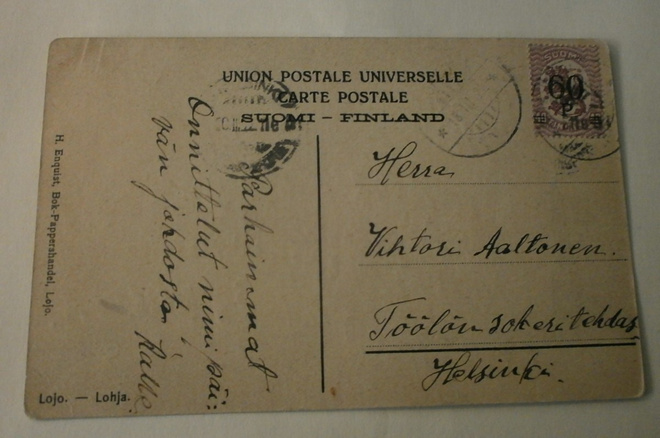 UNION POSTALE UNIVERSELLE
CARTE POSTALE
SUOMI – FINLAND
60
P
Parhaimmat
Onnittelut nimipäi:
vän johdosta,
Kalle
Herra
Vihtori Aaltonen.
Töölön sokeritehdas
Helsinki.
H. Enquist, Bok-Pappershandel, Lojo.
Lojo. — Lohja.